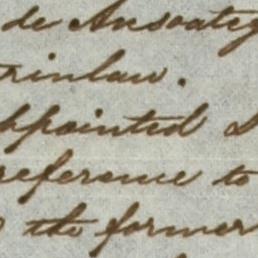 de Ansoateg
rinlaw.
ppointed
reference to
the former